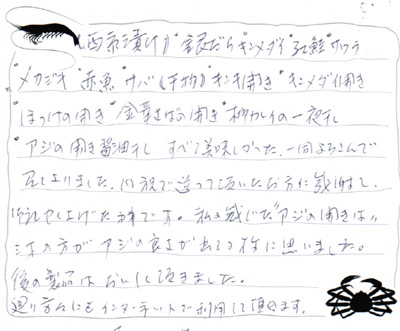 《西京漬け》銀だら キンメダイ 紅鮭 サワラ
メカジキ 赤魚 サバ《干物》キンキ開き キンメダイ開き
ほっけの開き 金華さばの開き 柳カレイの一夜干し
アジの開き醤油干し すべて美味しかった。一同よろこんで
召し上りました。 で送って頂いた方に感謝し、
御礼申し上げた 私の感じた"アジの開きは"
の方がアジの良さが出てる様に思いました。
後の製品はおいしく頂きました。
インターネットで利用して頂きます。